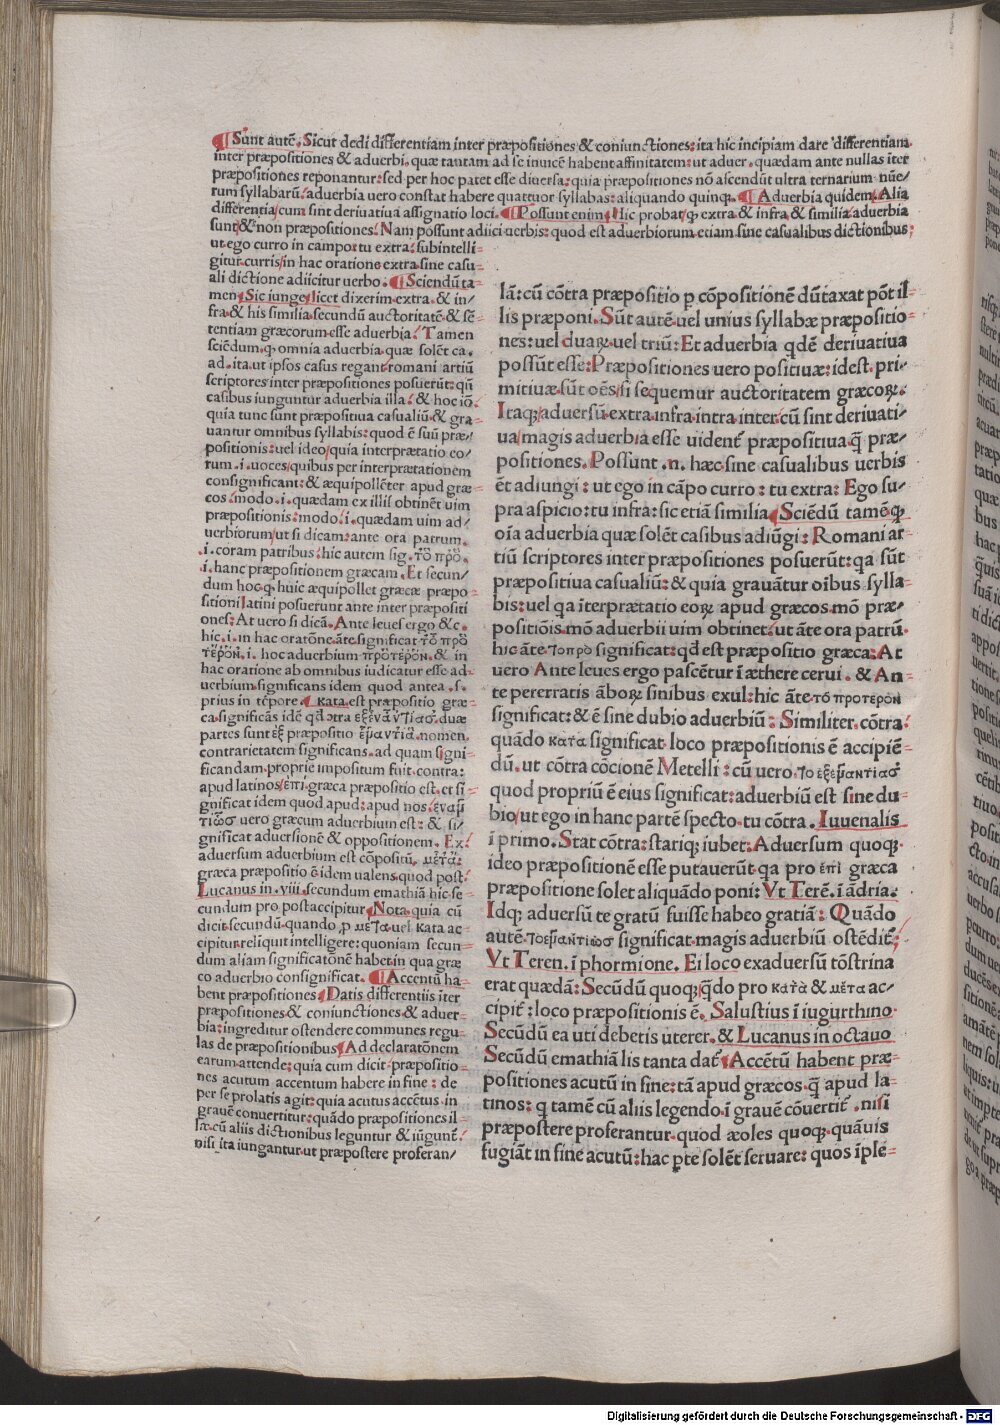 ¶Sunt autē. Sicut dedi differentiam inter præpositiones & coniunctiones: ita hic incipiam dare differentiam
inter præpositiones & aduerbi. quæ tantam ad se inuicē habent affinitatem: ut aduer. quædam ante nullas īter
præpositiones reponantur: sed per hoc patet esse diuersa: quia præpositiones nō ascendūt ultra ternarium nūe/
rum syllabarū: aduerbia uero constat habere quattuor syllabas: aliquando quinqꝫ. ¶Aduerbia quidem. Alia
differentia/cum sint deriuatiua assignatio loci. ¶Possunt enim. Hic probat/qꝫ extra & infra & similia aduerbia
sunt/& non præpositiones. Nam possunt adiici uerbis: quod est aduerbiorum etiam sine casualibus dictionibus:
ut ego curro in campo: tu extra: subintelli-
gitur curris/in hac oratione extra sine casu-
ali dictione adiicitur uerbo. ¶Sciendū ta-
men. Sic iunge/licet dixerim extra & in/
fra & his similia secundū auctoritatē & sē-
tentiam græcorum esse aduerbia. Tamen
sciēdum qꝫ omnia aduerbia quæ solēt ca.
ad. ita ut ipsos casus regant romani artiū
scriptores inter præpositiones posuerūt: qñ
casibus iunguntur aduerbia illa: & hoc iō
quia tunc sunt præpositiua casualiū & gra-
uantur omnibus syllabis: quod ē suū præ/
positionis: uel ideo/quia interprætatio eo/
rum .i. uoces/quibus per interprætationem
consignificant: & æquipollēter apud græ-
cos. modo .i. quædam ex illis obtinēt uim
præpositionis: modo .i. quædam uim ad/
uerbiorum/ut si dicam: ante ora patrum.
.i. coram patribus: hic autem sig. τὸ πρὸ.
.i. hanc præpositionem græcam. Et secun/
dum hoc qꝫ huic æquipollet græcæ præpo-
sitioni latini posuerunt ante inter præpositi
ones: At uero si dicā. Ante leues ergo &c.
hic .i. in hac oratōne āte significat τὸ πρὸ
τέρον .i. hoc aduerbium πρότερον. & in
hac oratione ab omnibus iudicatur esse ad-
uerbium significans idem quod antea .s.
prius in tēpore. ¶κατα est præpositio græ-
ca significās idē qḋ cōtra ἐξεναντίασ duæ
partes sunt ἐξ præpositio ἐναντία nomen
contrarietatem significans. ad quam signi-
ficandam proprie impositum fuit contra:
apud latinos/ἐπὶ græca præpositio est. et si-
gnificat idem quod apud: apud nos/ἐναν
τίωσ uero græcum aduerbium est: & si/
gnificat aduersionē & oppositionem. Ex
aduersum aduerbium est cōpositū. μετὰ
græca præpositio ē idem ualens quod post.
Lucanus in .viii. secundum emathiā hic se-
cundum pro post accipitur. Nota quia cū
dicit secundū. quando ꝓ μετα uel κατα ac-
cipitur reliquit intelligere: quoniam secun-
dum aliam significatonē habet in qua græ
co aduerbio consignificat. ¶Accentū ha-
bent præpositiones. Datis differentiis īter
præpositiones & coniunctiones & aduer-
bia: ingreditur ostendere communes regu-
las de præpositionibus. Ad declaratōnem
earum attende: quia cum dicit præpositio-
nes acutum accentum habere in fine: de
per se prolatis agit: quia acutus accētus in
grauē conuertitur: quādo præpositiones il-
læ cū aliis dictionibus leguntur & iūgunē.
nisi ita iungantur ut præpostere proferan/
lā: cū cōtra præpositio ꝑ cōpositionē dūtaxat pōt il-
lis præponi. Sūt autē uel unius syllabæ præpositio-
nes: uel duaꝝ: uel triū: Et aduerbia qdē deriuatiua
possūt esse: Præpositiones uero positiuæ: idest pri-
mitiuæ sūt oēs/si sequemur auctoritatem græcoꝝ.
Itaqꝫ/aduersū extra infra intra inter cū sint deriuati/
ua/magis aduerbia esse uident præpositiua q̄ præ/
positiones. Possunt .n. hæc sine casualibus uerbis
ēt adiungi: ut ego in cāpo curro: tu extra: Ego su/
pra aspicio: tu infra: sic etiā similia. Sciēdū tamē qꝫ
oīa aduerbia quæ solēt casibus adiūgi: Romani ar-
tiū scriptores inter præpositiones posuerūt: qa sūt
præpositiua casualiū: & quia grauātur oībus sylla-
bis: uel qa īterprætatio eoꝝ apud græcos mō præ/
positiōis mō aduerbii uim obtinet: ut āte ora patrū.
hic āte τοπρο significat: qd est præpositio græca: At
uero Ante leues ergo pascētur ī æthere cerui. & An-
te pererratis āboꝝ finibus exul: hic āte τὸ προτερον
significat: & ē sine dubio aduerbiū: Similiter cōtra
quādo κατα significat loco præpositionis ē accipiē-
dū. ut cōtra cōcionē Metelli: cū uero τοεξεναντιασ
quod propriū ē eius significat: aduerbiū est sine du-
bio/ut ego in hanc partē specto. tu cōtra. Iuuenalis
ī primo. Stat cōtra: stariqꝫ iubet. Aduersum quoqꝫ
ideo præpositionē esse putauerūt qa pro ἐπὶ græca
præpositione solet aliquādo poni: Vt Terē. ī ādria.
Idqꝫ aduersū te gratū fuisse habeo gratiā: Quādo
autē τοεναντιωσ significat magis aduerbiū ostēdit:
Vt Teren. ī phormione. Ei loco exaduersū tōstrina
erat quædā: Secūdū quoqꝫ q̄do pro κατὰ & μετα ac/
cipit: loco præpositionis ē. Salustius ī iugurthino.
Secūdū ea uti debetis uterer. & Lucanus in octauo
Secūdū emathiā lis tanta dat. Accētū habent præ-
positiones acutū in fine: tā apud græcos q̄ apud la-
tinos: q tamē cū aliis legendo ī grauē cōuertit. nisi
præpostere proferantur quod æoles quoqꝫ quāuis
fugiāt in fine acutū: hac ꝑte solēt seruare: quos īple-
Digitalisierung gefördert durch die Deutsche Forschungsgemeinschaft - DFG